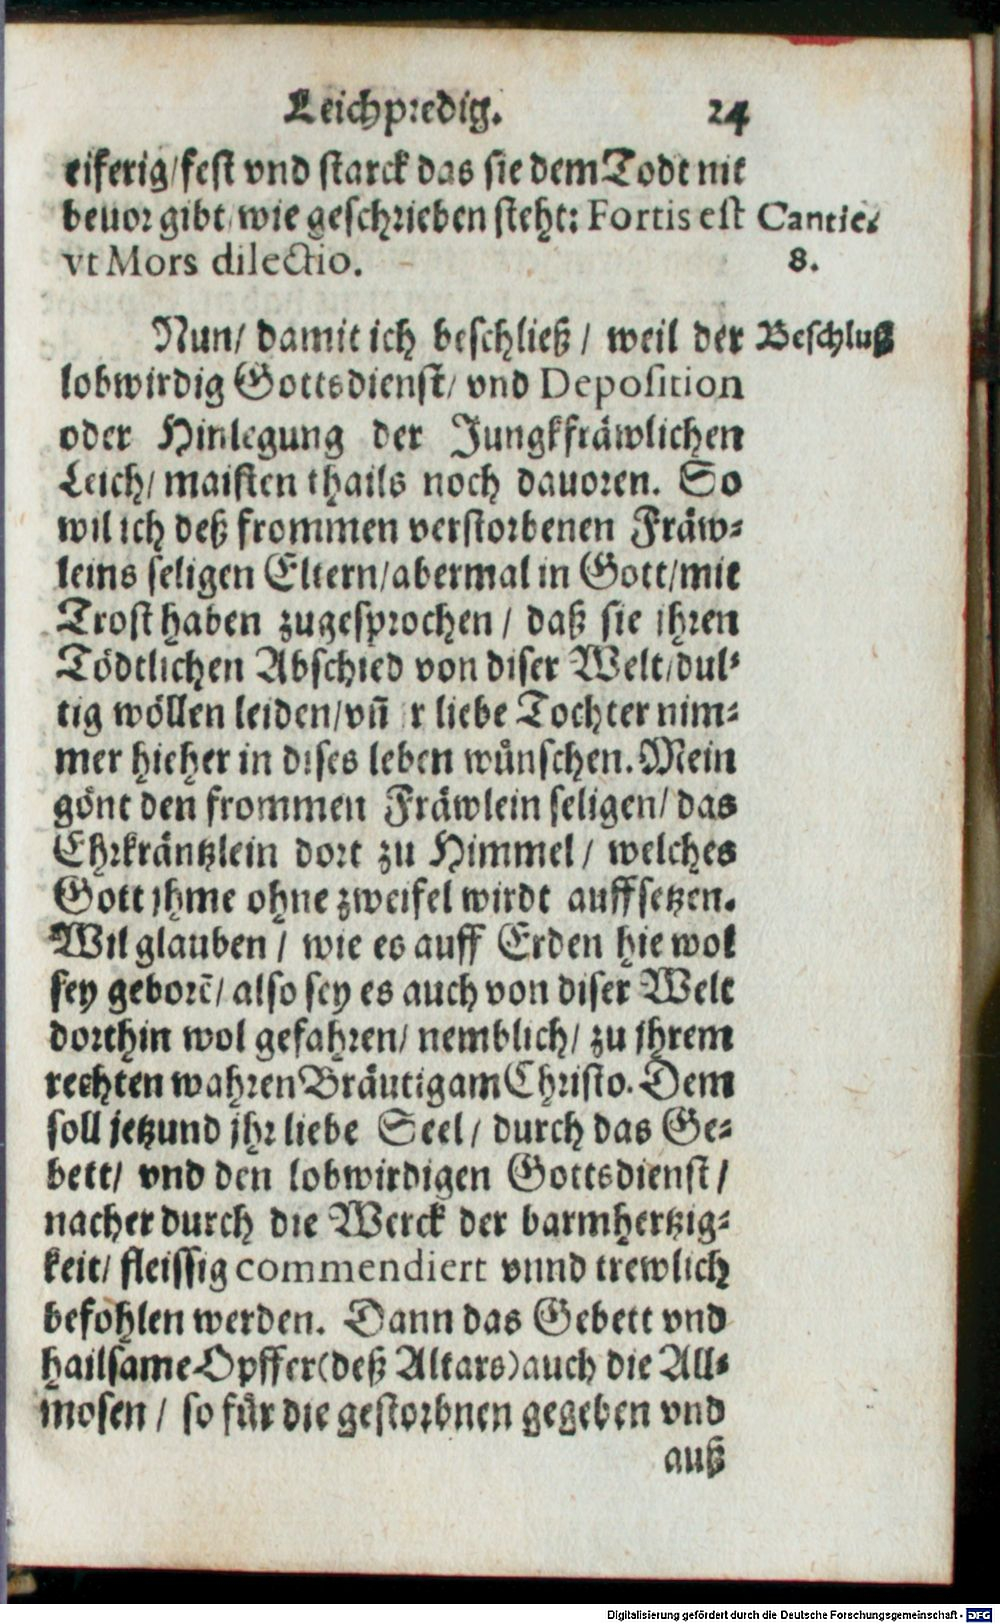 Leichpredig. 24
eiferig/fest vnd starck das sie dem Todt nit
beuor gibt/wie geschrieben steht: Fortis est Cantic.
vt Mors dilectio. 8.
Nun/ damit ich beschließ / weil der Beschluß
lobwirdig Gottsdienst/ vnd Deposition
oder Hinlegung der Jungkfräwlichen
Leich/ maisten thails noch dauoren. So
wil ich deß frommen verstorbenen Fräw-
leins seligen Eltern/abermal in Gott/mit
Trost haben zugesprochen / daß sie jhren
Tödtlichen Abschied von diser Welt/dul-
tig wöllen leiden/vñ r liebe Tochter nim-
mer hieher in dises leben wünschen. Mein
gönt den frommen Fräwlein seligen/ das
Ehrkräntzlein dort zu Himmel / welches
Gott jhme ohne zweifel wirdt auffsetzen.
Wil glauben / wie es auff Erden hie wol
sey geborẽ/ also sey es auch von diser Welt
dorthin wol gefahren/ nemblich/ zu jhrem
rechten wahren Bräutigam Christo. Dem
soll jetzund jhr liebe Seel / durch das Ge-
bett/ vnd den lobwirdigen Gottsdienst /
nacher durch die Werck der barmhertzig-
keit/ fleissig commendiert vnnd trewlich
befohlen werden. Dann das Gebett vnd
hailsame Opffer(deß Altars)auch die All-
mosen / so für die gestorbnen gegeben vnd
auß
Digitalisierung gefördert durch die Deutsche Forschungsgemeinschaft - DFG